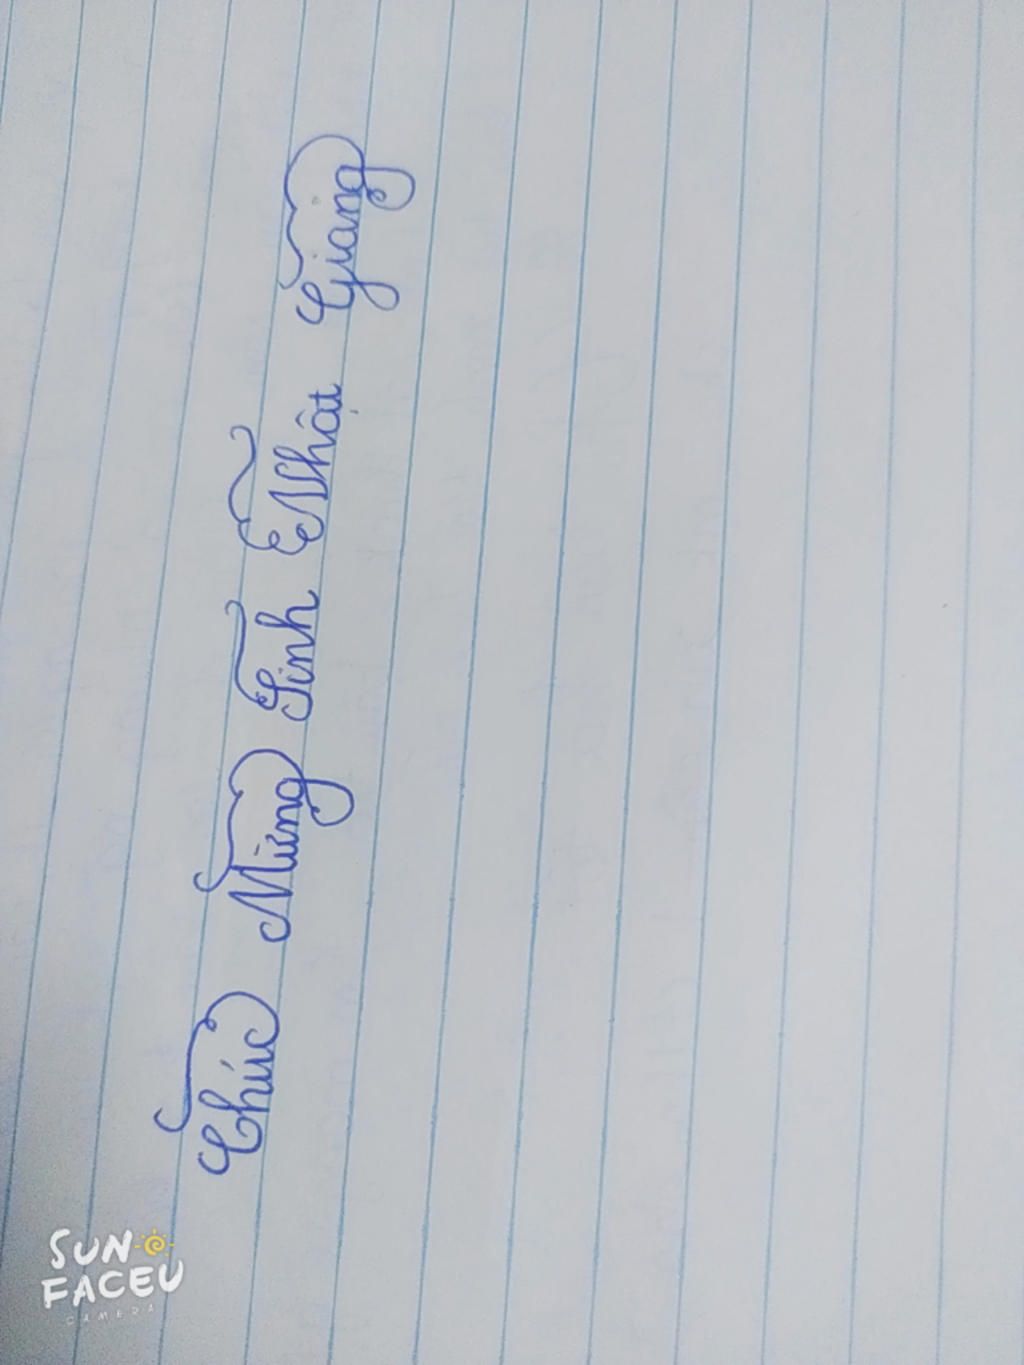 Chúc Mừng Sinh Nhật Giang
SUN
FACEU
CAMERA